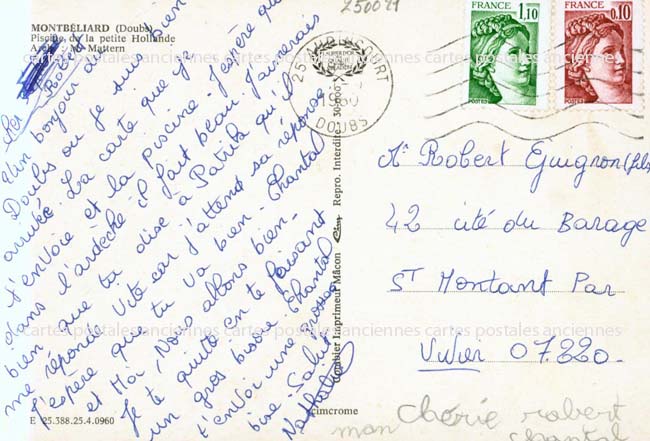 250021
MONTBÉLIARD (Doubs)
Piscine de la petite Hollande
Arch. : M. Mattern
Cher Robert
Un bonjour du
Doubs ou je suis bien
arrivée. La carte que je
t'envoie et la piscine. J'espère que
dans l'ardèche il fait beau j'aimerais
bien que tu dise à Patrick qu'il
me réponde Vite car j'attend sa réponse
J'espère que tu va bien. Chantal
et Moi, Nous allons bien.
Je te quitte en te faisant
un gros bisous. Chantal
t'envoi une grosse
bise. Salut
Nathalie
E 25.388.25.4.0960
Combier Imprimeur Mâcon Cim Repro. Interdite : 30.000
cimcrome
25 AUDINCOURT
1980
DOUBS
FRANCE
1,10
POSTES
FRANCE
0,10
POSTES
Mr Robert Guignon (fils)
42 cité du Barage
ST Montant Par
Vivier 07.220.
mon chérie robert
chantal
cartes postales anciennes cartes postales anciennes cartes postales anciennes